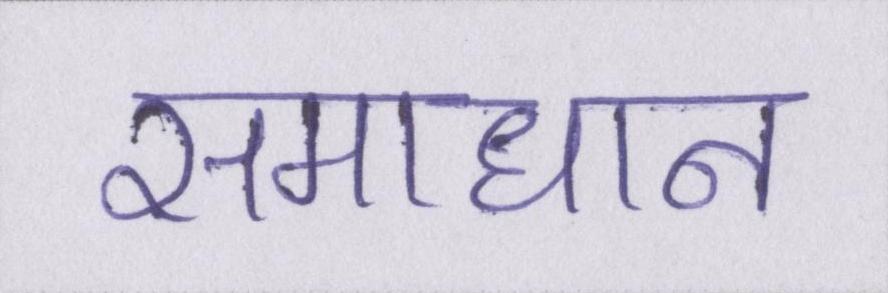 समाधान